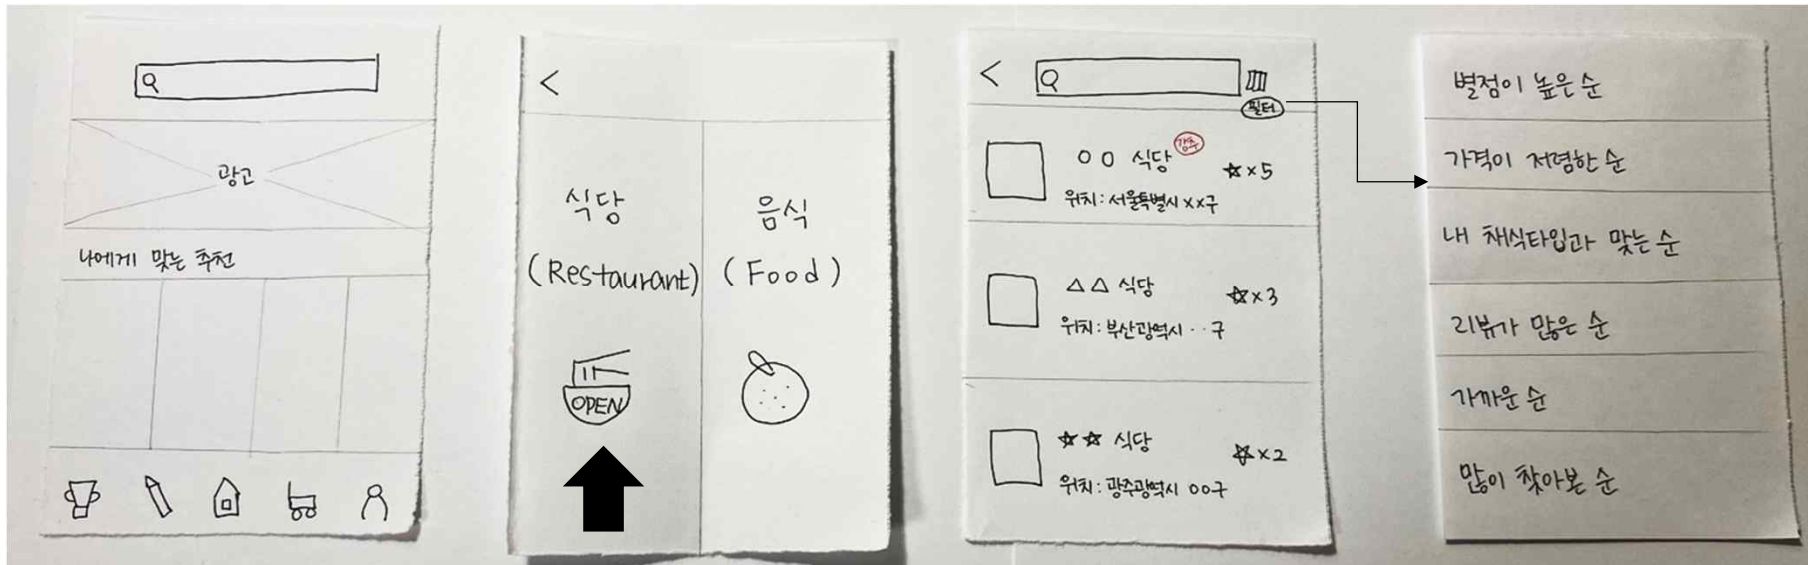 광고
나에게 맞는 추천
식당
(Restaurant)
OPEN
음식
(Food)
필터
○○ 식당 강추
☆×5
위치: 서울특별시 ××구
△△ 식당
☆×3
위치: 부산광역시 ··구
☆☆ 식당
☆×2
위치: 광주광역시 ○○구
별점이 높은 순
가격이 저렴한 순
내 채식타입과 맞는 순
리뷰가 많은 순
가까운 순
많이 찾아본 순